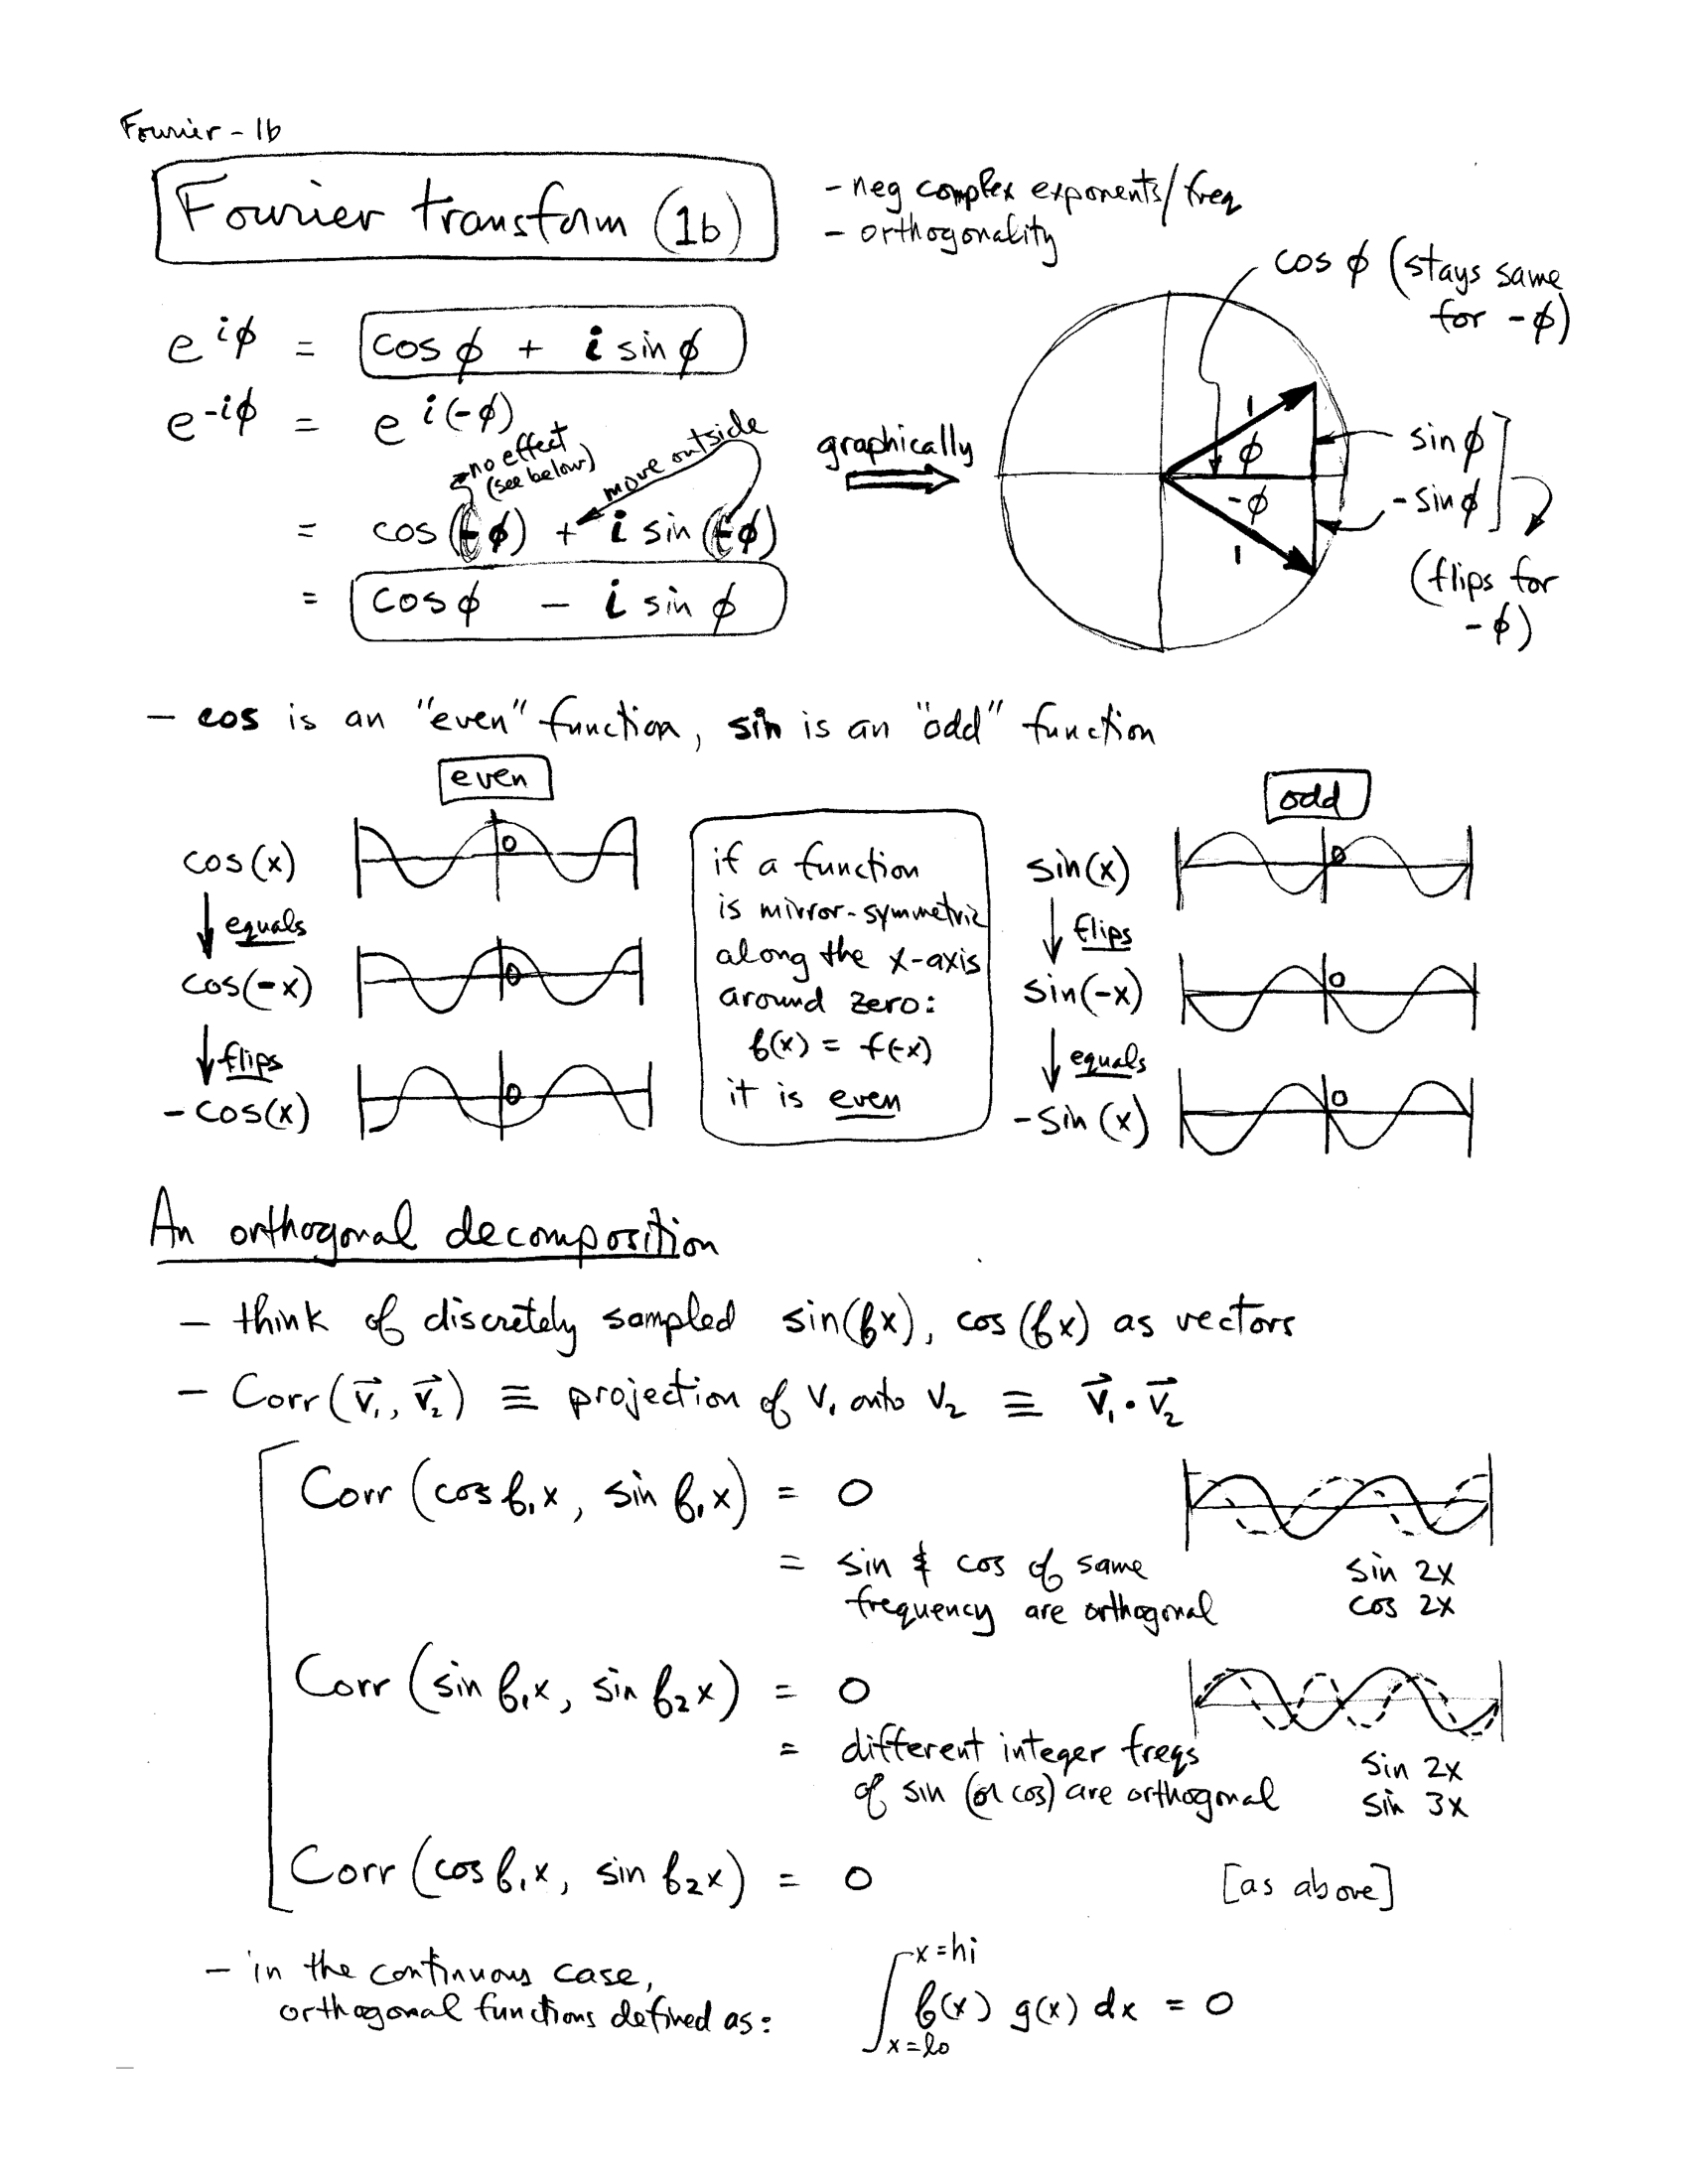 Fourier - 1b
Fourier transform (1b)
- neg complex exponents/freq
- orthogonality
e^{iφ} = cos φ + i sin φ
e^{-iφ} = e^{i(-φ)}
no effect
(see below)
move outside
= cos(-φ) + i sin(-φ)
= cos φ - i sin φ
graphically
cos φ (stays same
for -φ)
1
φ
-φ
1
sin φ
-sin φ
(flips for
-φ)
- cos is an "even" function, sin is an "odd" function
even
cos(x)
0
equals
cos(-x)
0
flips
-cos(x)
0
if a function
is mirror-symmetric
along the x-axis
around zero:
f(x) = f(-x)
it is even
odd
sin(x)
0
flips
sin(-x)
0
equals
-sin(x)
0
An orthogonal decomposition
- think of discretely sampled sin(fx), cos(fx) as vectors
- Corr(v⃗₁, v⃗₂) ≡ projection of v₁ onto v₂ ≡ v⃗₁ · v⃗₂
Corr(cos f₁x, sin f₁x) = 0
= sin & cos of same
frequency are orthogonal
sin 2x
cos 2x
Corr(sin f₁x, sin f₂x) = 0
= different integer freqs
of sin (or cos) are orthogonal
sin 2x
sin 3x
Corr(cos f₁x, sin f₂x) = 0 [as above]
- in the continuous case,
orthogonal functions defined as:
∫_{x=lo}^{x=hi} f(x) g(x) dx = 0